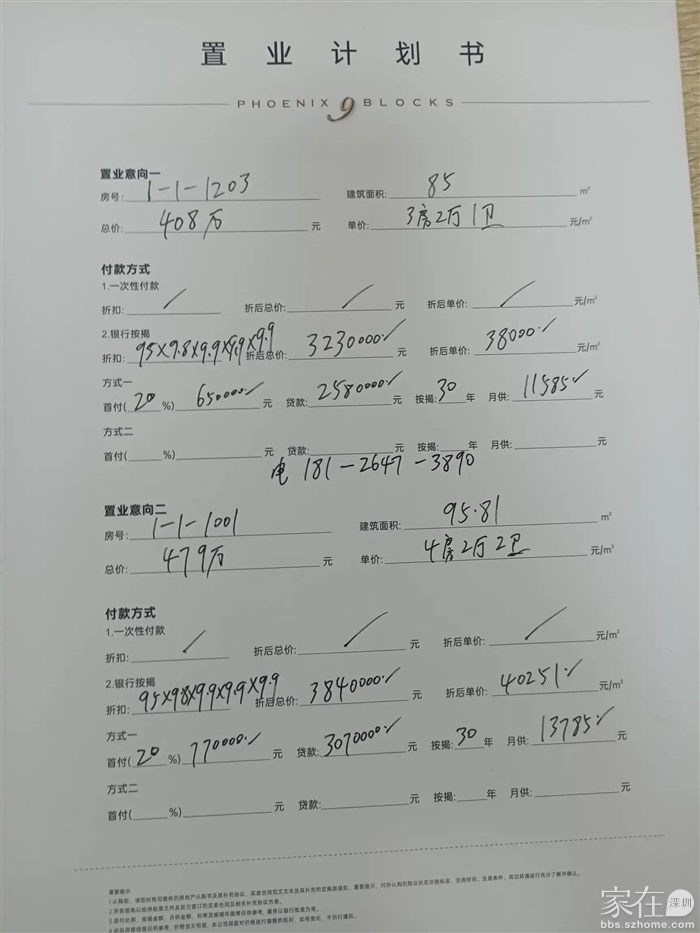 置业计划书
PHOENIX 9 BLOCKS
置业意向一
房号: 1-1-1203 建筑面积: 85 m²
总价: 408万 元 单价: 3房2厅1卫 元/m²
付款方式
1.一次性付款
折扣: / 折后总价: / 元 折后单价: / 元/m²
2.银行按揭
折扣: 95×9.8×9.9×9.9×9.9 折后总价: 3230000 元 折后单价: 38000 元/m²
方式一
首付(20%) 650000 元 贷款: 2580000 元 按揭: 30 年 月供: 11585 元
方式二
首付( %) 元 贷款: 元 按揭: 年 月供: 元
电 181-2647-3890
置业意向二
房号: 1-1-1001 建筑面积: 95.81 m²
总价: 479万 元 单价: 4房2厅2卫 元/m²
付款方式
1.一次性付款
折扣: / 折后总价: / 元 折后单价: / 元/m²
2.银行按揭
折扣: 95×98×9.9×9.9×9.9 折后总价: 3840000 元 折后单价: 40251 元/m²
方式一
首付(20%) 770000 元 贷款: 3070000 元 按揭: 30 年 月供: 13785 元
方式二
首付( %) 元 贷款: 元 按揭: 年 月供: 元
重要提示
家在深圳
bbs.szhome.com